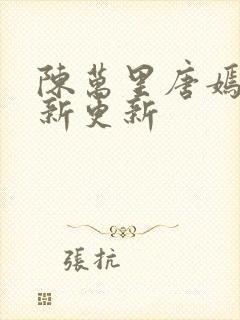 陳萬里唐嫣
新更新
張抗